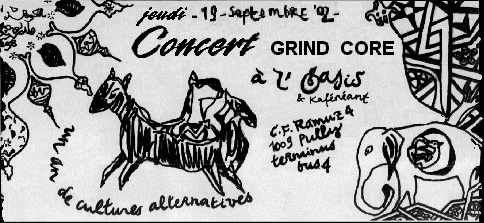 jeudi - 19 - septembre '02 -
Concert GRIND CORE
à l'Oasis
& Kafénéant
C.F. Ramuz 4
1009 Pully
terminus
bus 4
un an de cultures alternatives